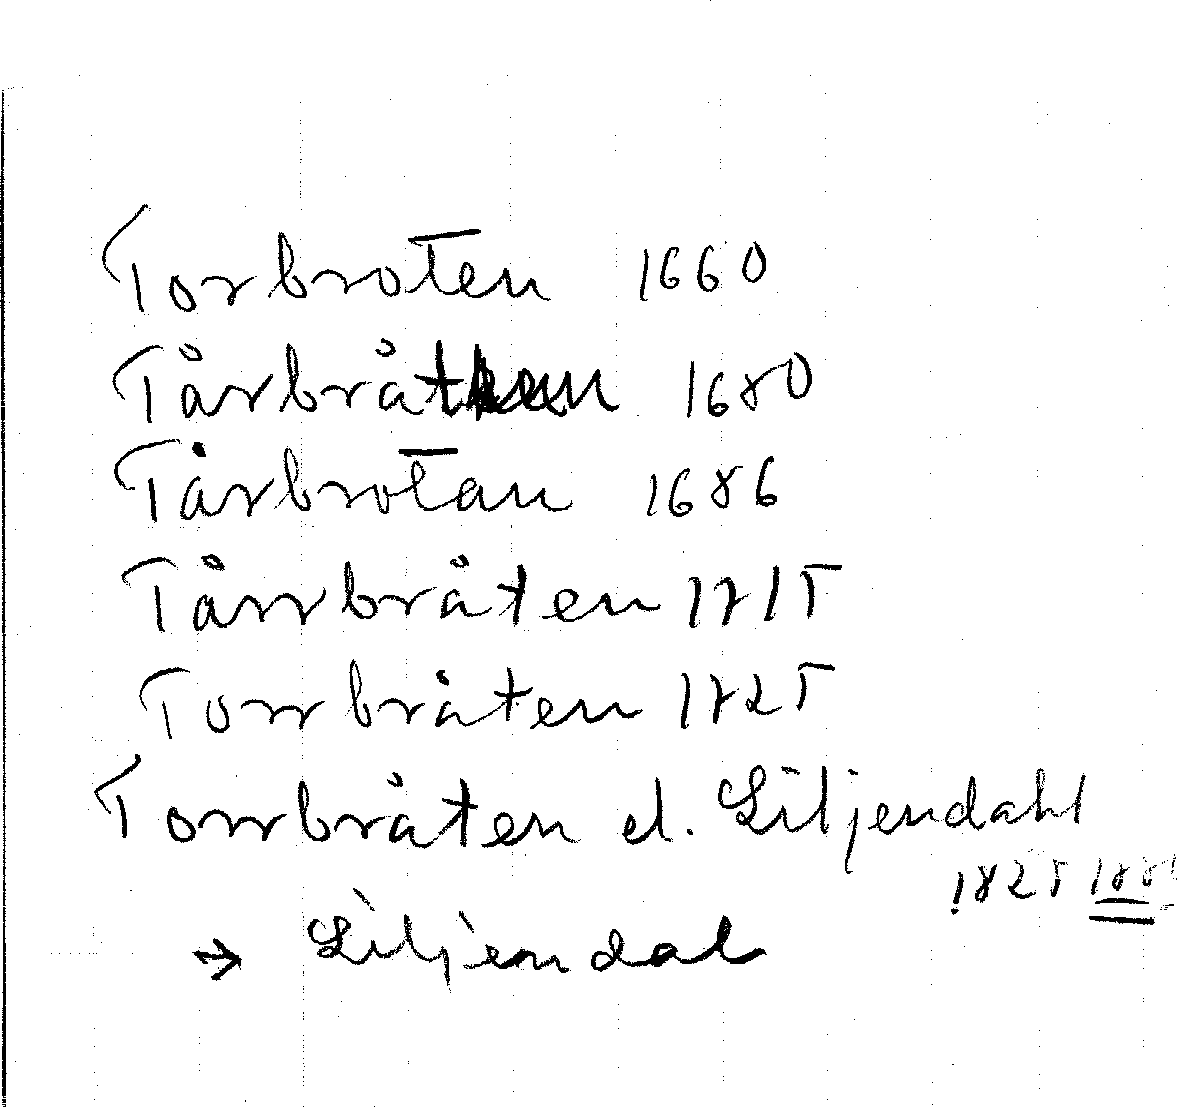 Torbroten 1660
Tårbråten 1680
Tårbrotan 1686
Tårrbråten 1715
Torrbråten 1725
Torrbråten el. Liljendahl
1825
→ Liljendal